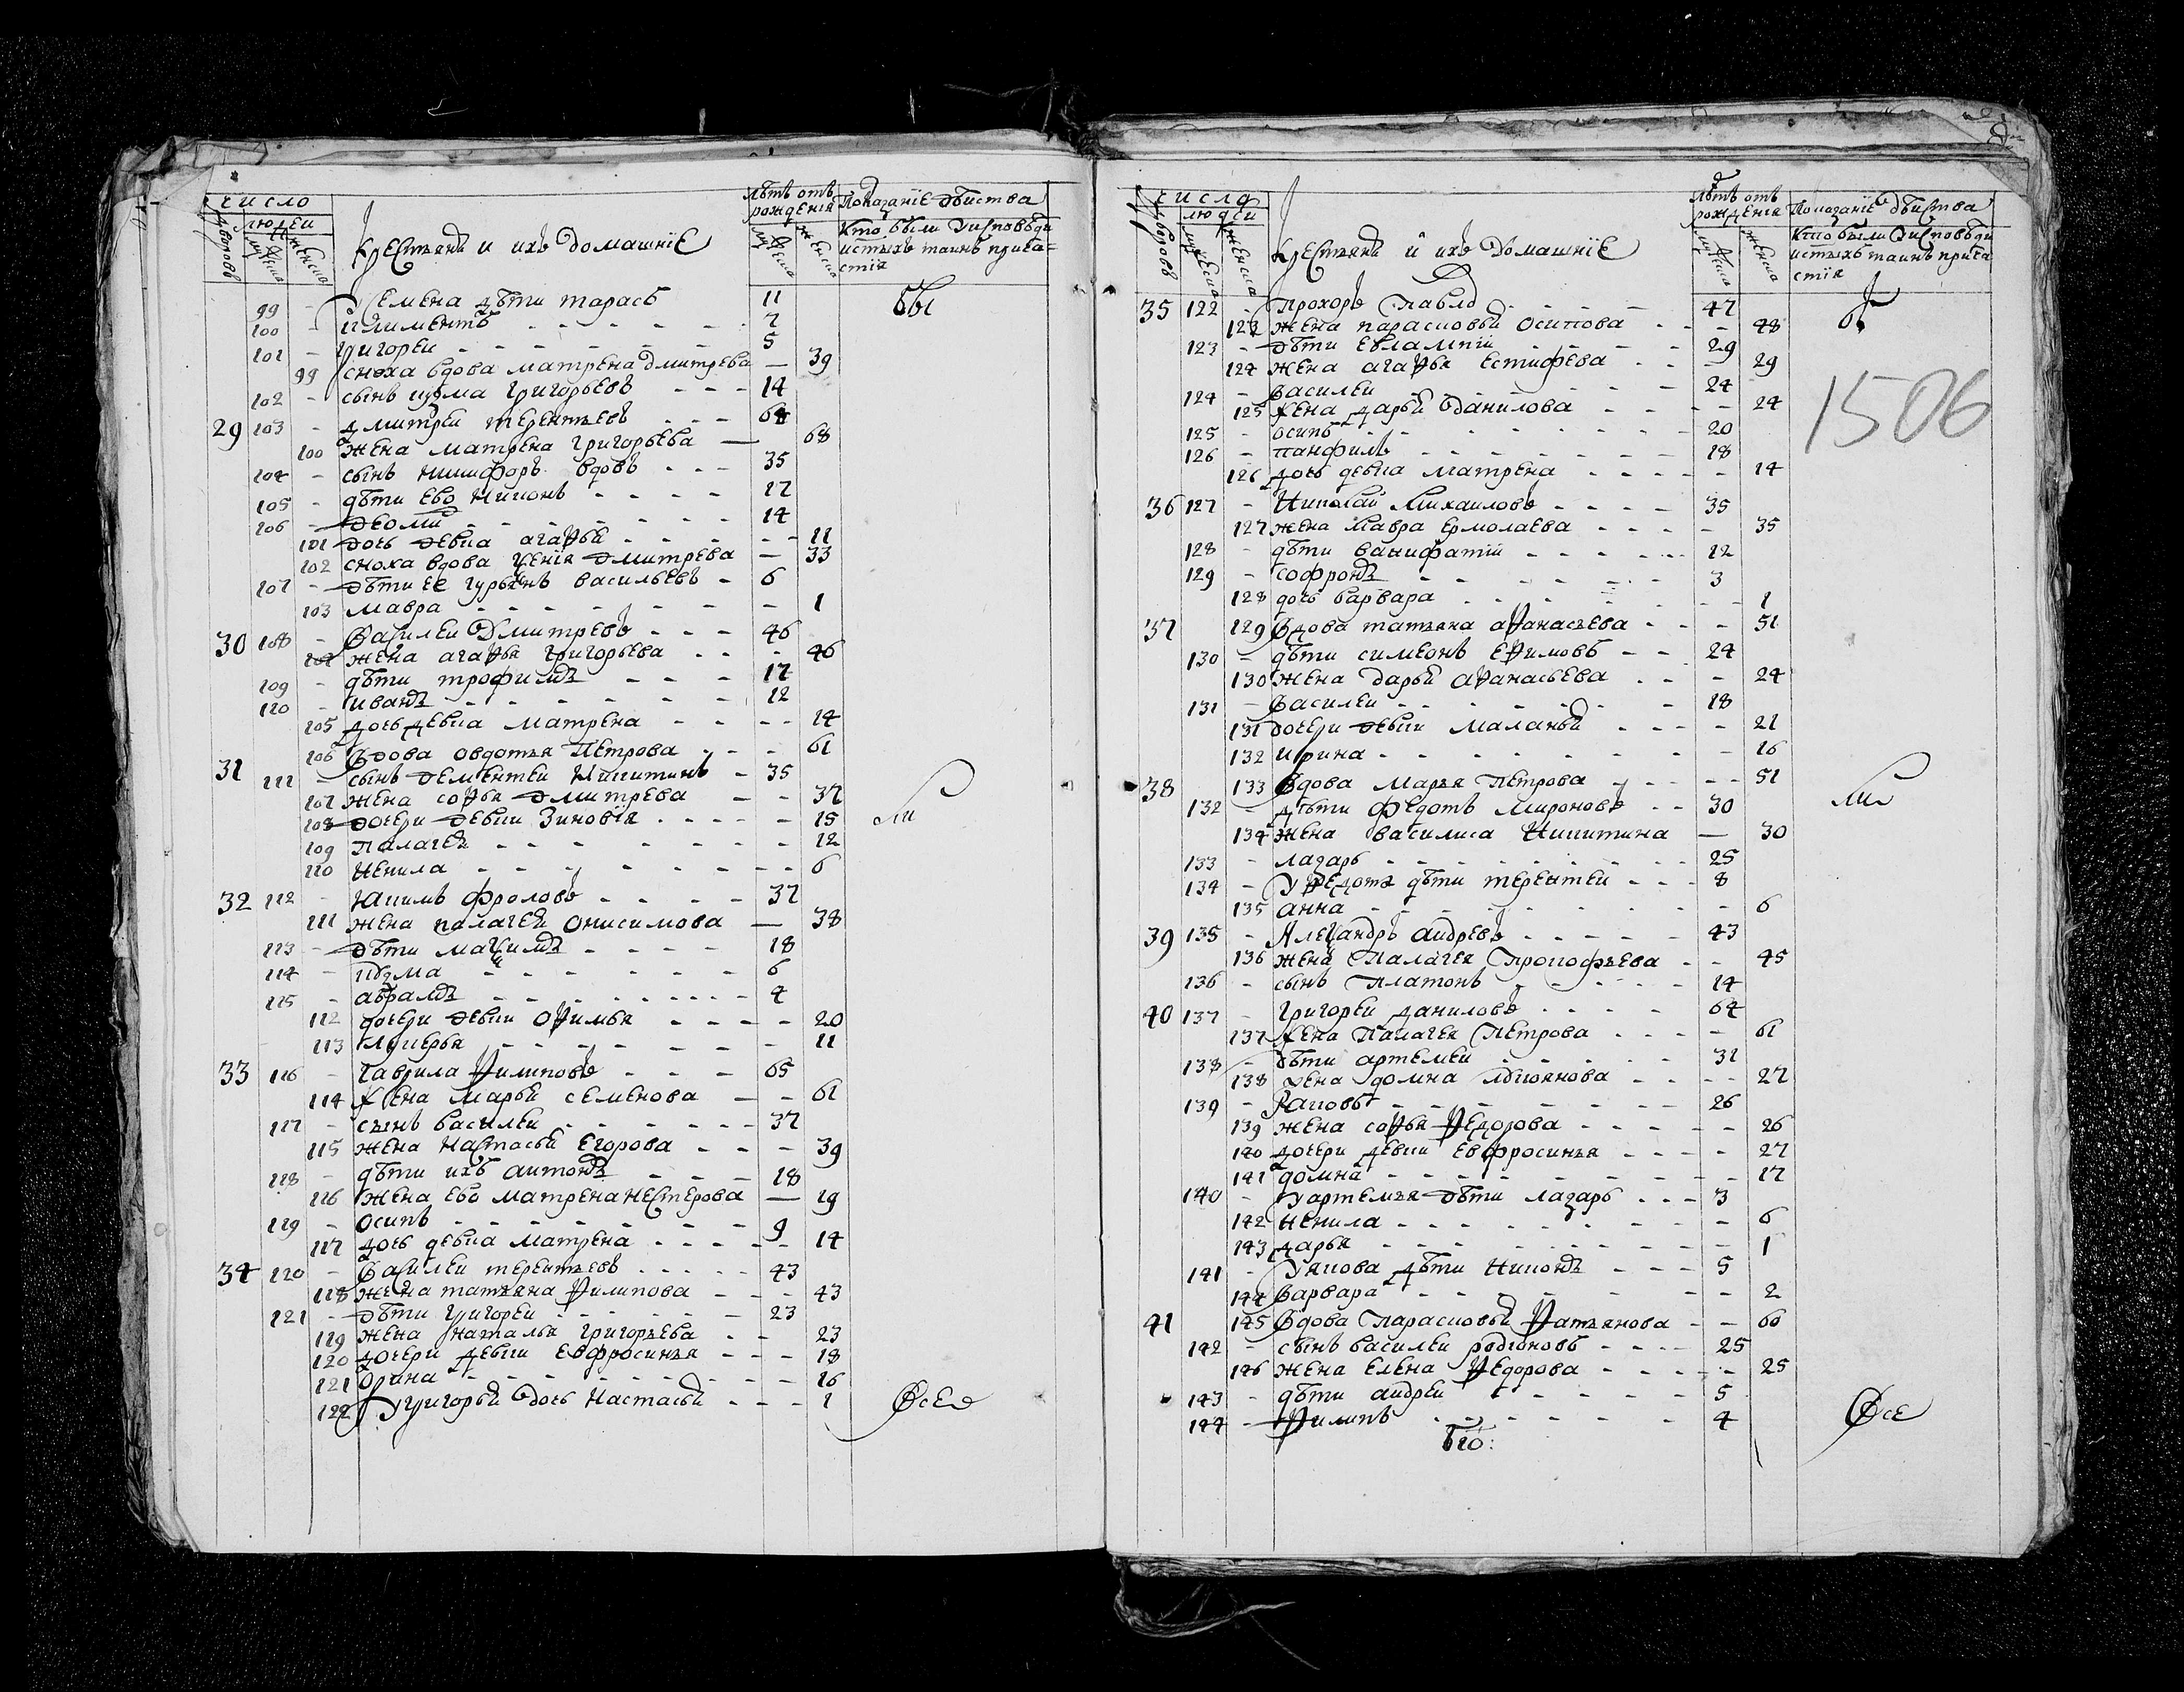 число
людей
дворовъ
мужеска
женска
Крестьянѣ и ихъ домашнїе
лѣтъ отъ рожденїя
мужеска
женска
Показанїе дѣйства
кто были у исповѣди
и стыхъ таинъ прича=
стїя
99 - Семена дѣти тарасъ 11 бы
100 - Климентъ - 7
101 - Григореи - 5
99 сноха вдова матрена дмитрева — 39
102 - сынъ кузма григорьевъ - 14
29 103 - дмитреи терентьевъ - 64
100 жена матрена григорьева — 68
104 - сынъ никифоръ вдовъ - 35
105 - дѣти ево никонъ - 17
106 - деомид - 14
101 дочь девка агафья - 11
102 сноха вдова ксенїя дмитрева — 33
107 - дѣти ее гурьянъ васильевъ - 6
103 мавра - 1
30 108 - Василеи Дмитревъ - 46
104 жена агафья григорьева - 46
109 - дѣти трофимъ - 17
110 - иванъ - 12
105 дочь девка матрена - 14
31 106 Вдова овдотья Петрова - 61
111 - сынъ дементеи никитинъ - 35
107 жена софья дмитрева - 37
108 дочери девки Зиновїя - 15 ли
109 палагея - 12
110 ненила - 6
32 112 - Якимъ фроловъ - 37
111 жена палагея онисимова — 38
113 - дѣти макѯимъ - 18
114 - кузма - 6
115 - аврамъ - 4
112 дочери девки офимья - 20
113 лукерья - 11
33 116 - Гаврила филиповъ - 65
114 Жена марья семенова - 61
117 - сынъ василеи - 37
115 жена настасья егорова - 39
118 - дѣти ихъ антонъ - 18
116 жена ево матрена нестерова — 19
119 - осипъ - 9
117 дочь девка матрена - 14
34 120 - Василеи терентьевъ - 43
118 жена татьяна филипова - 43
121 - дѣти григореи - 23
119 жена наталья григорьева - 23
120 дочери девки евфросинья - 18
121 орина - 16
122 У григорья дочь настасья - 1 Все
число
людеи
дворовъ
мужеска
женска
Крестьянѣ и ихъ домашнїе
лѣтъ отъ рожденїя
мужеска
женска
Показанїе дѣиства
кто были у исповѣди
и стыхъ таинъ прича
стїя
35 122 - Прохоръ Павло - 47 б
123 жена парасковья осипова - 48
123 - дѣти евлампїи - 29
124 жена агафья естифева - 29
1506
124 - василеи - 24
125 жена дарья данилова - 24
125 - осипъ - 20
126 - панфилъ - 18
126 дочь девка матрена - 14
36 127 - Николаи михаиловъ - 35
127 жена мавра ермолаева - 35
128 - дѣти ванифатїи - 12
129 - софронъ - 3
128 дочь варвара - 1
37 129 Вдова татьяна афанасьева - 51
130 - дѣти симеонъ ефимовъ - 24
130 жена дарья афанасьева - 24
131 - Василеи - 18
131 дочери девки маланья - 21
132 ирина - 16
38 133 Вдова марья петрова - 51
132 - дѣти федотъ мироновъ - 30 ли
134 жена василиса никитина — 30
133 - лазарь - 25
134 - У федота дѣти терентеи - 8
135 анна - 6
39 135 - Алеѯандръ андревъ - 43
136 жена Палагея Прокофьева - 45
136 - сынъ Платонъ - 14
40 137 - Григореи даниловъ - 64
137 Жена Палагея Петрова - 61
138 - дѣти артемеи - 31
138 жена домна - 27
139 - Яковъ - 26
139 жена софья федорова - 26
140 дочери девки евфросинья - 27
141 домна - 17
140 - У артемья дѣти лазарь - 3
142 ненила - 6
143 дарья - 1
141 - У якова дѣти никонъ - 5
144 Варвара - 2
41 145 Вдова Парасковья - 60
142 - сынъ василеи родїоновъ - 25
146 жена елена федорова - 25
143 - дѣти андреи - 5
144 - филипъ - 4 Все